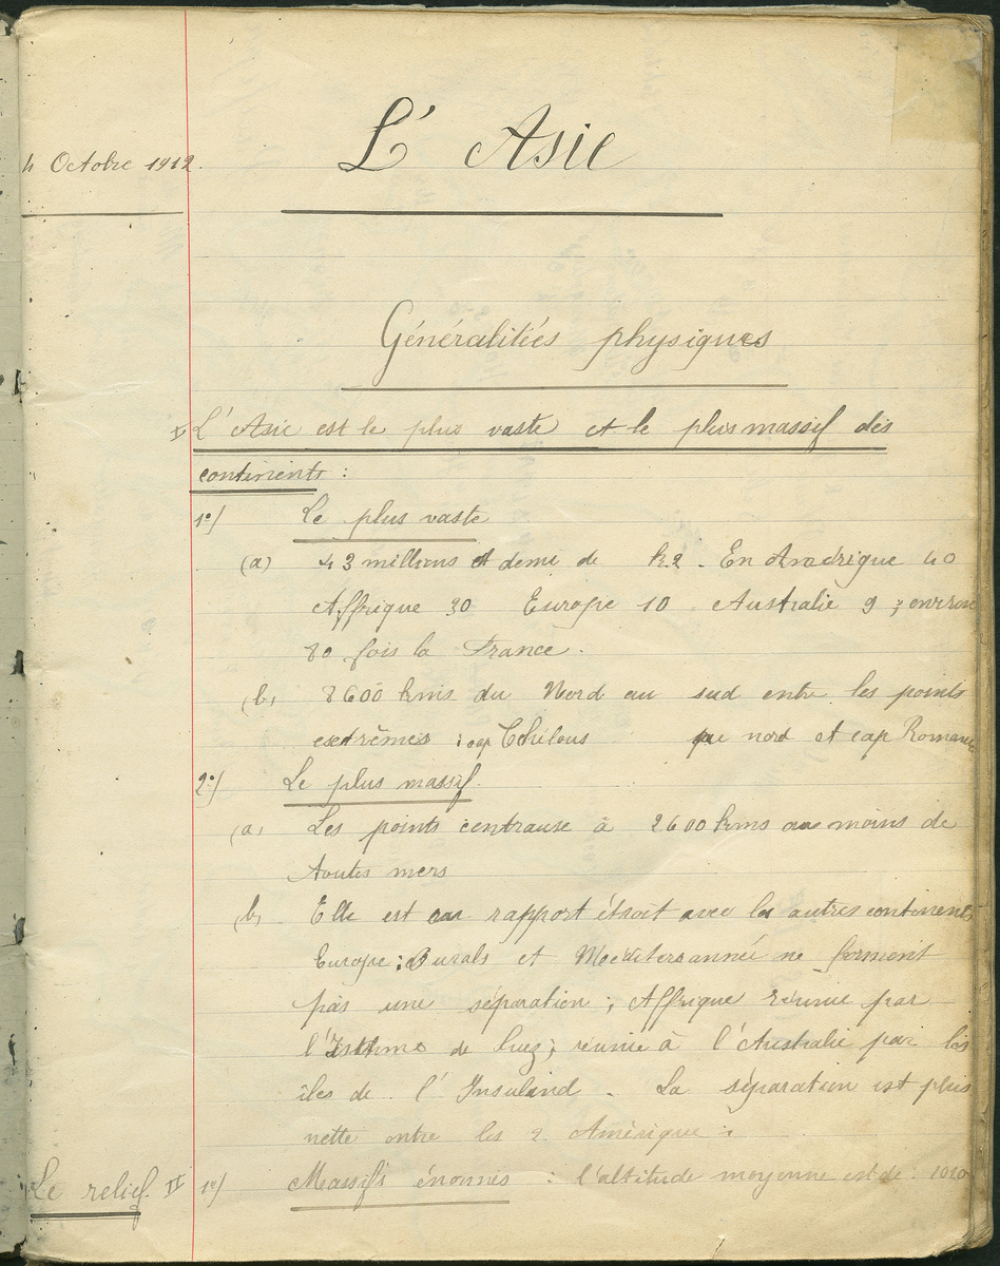 L' Asie
4 Octobre 1912.
Généralitiés physiques
I L' Asie est le plus vaste et le plus massif des
continents :
1º/ Le plus vaste
(a) 43 millions et demi de k2. En Amérique 40
Affrique 30 Europe 10 Australie 9 ; environ
80 fois la France.
(b) 8600 kms du Nord au sud entre les points
extrêmes : cap Tchelous au nord et cap Romania
2º/ Le plus massif.
(a) Les points centraux à 2600 kms au moins de
toutes mers
(b) Elle est en rapport étroit avec les autres continents
Europe : Ourals et Mediterrannée ne forment
pas une séparation ; Affrique réunie par
l'Isthme de Suez ; réunie à l'Australie par les
îles de l' Insuland. La séparation est plus
nette entre les 2 Amérique :
Le relief. II 1º/ Massifs énormes : l'altitude moyenne est de : 1010